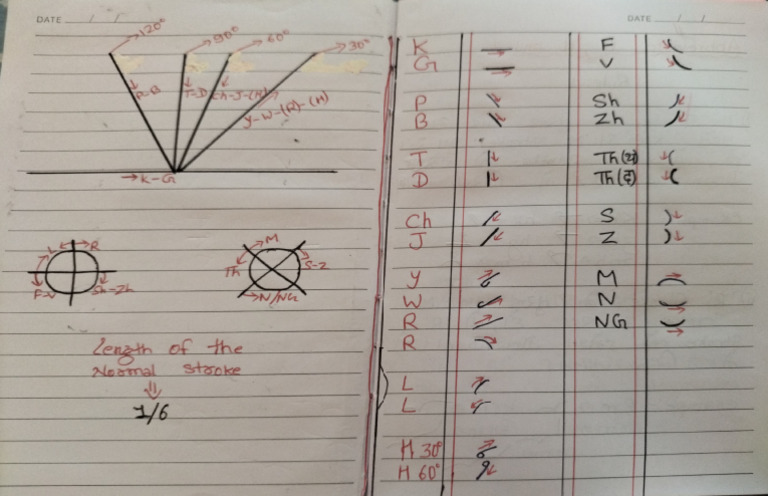 DATE
120°
90°
60°
30°
P-B
T-D
Ch-J-(H)
Y-W-(R)-(H)
→K-G
L
R
F-V
Sh-Zh
M
Th
S-Z
N/NG
Length of the
Normal stroke
1/6
DATE
K F
G V
P Sh
B Zh
T Th(थ)
D Th(द)
Ch S
J Z
Y M
W N
R NG
R
L
L
H 30°
H 60°